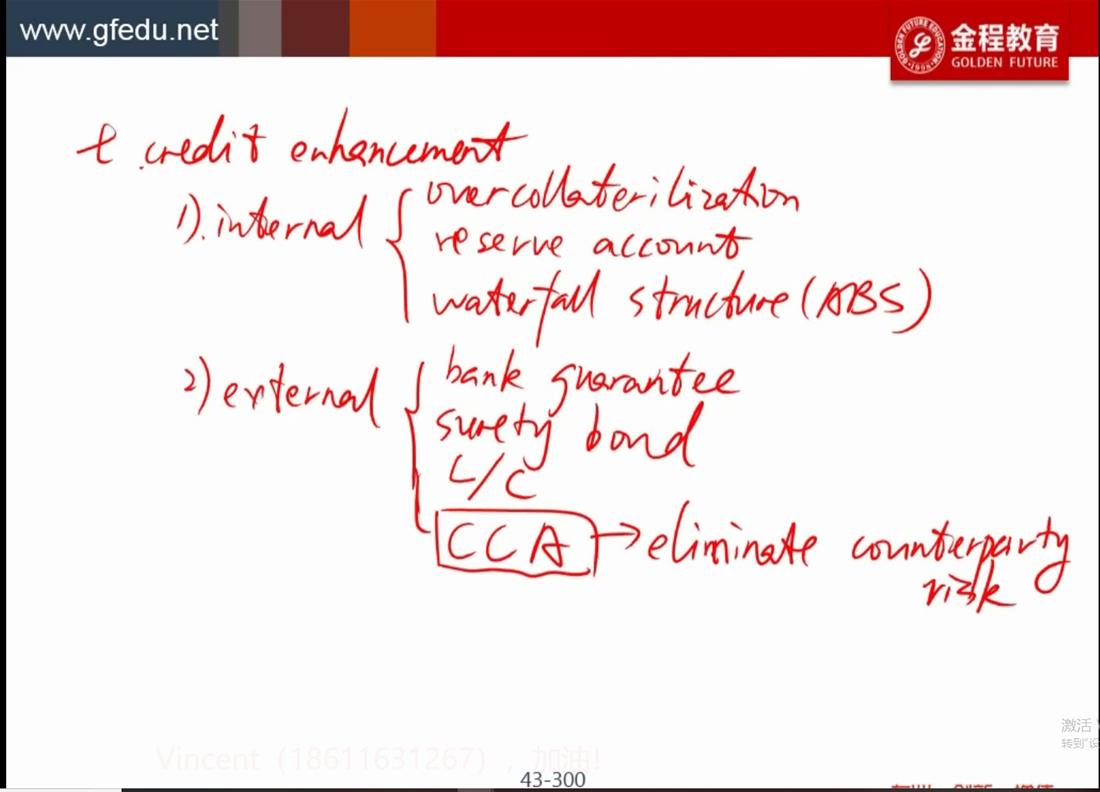 www.gfedu.net
金程教育
GOLDEN FUTURE
credit enhancement
1). internal
overcollaterilization
reserve account
waterfall structure (ABS)
2) external
bank guarantee
surety bond
L/C
CCA → eliminate counterparty risk
激活
转到"设
Vincent（18611631267），加油!
43-300